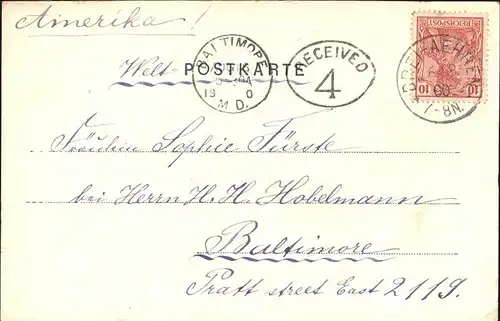 Amerika!
Welt- POSTKARTE
BALTIMORE
19 0
M D.
RECEIVED
4
10 REICHSPOST 10
00
7-8N.
Fräulein Sophie Fürste
bei Herrn H. H. Hobelmann
Baltimore
Pratt street East 2119.